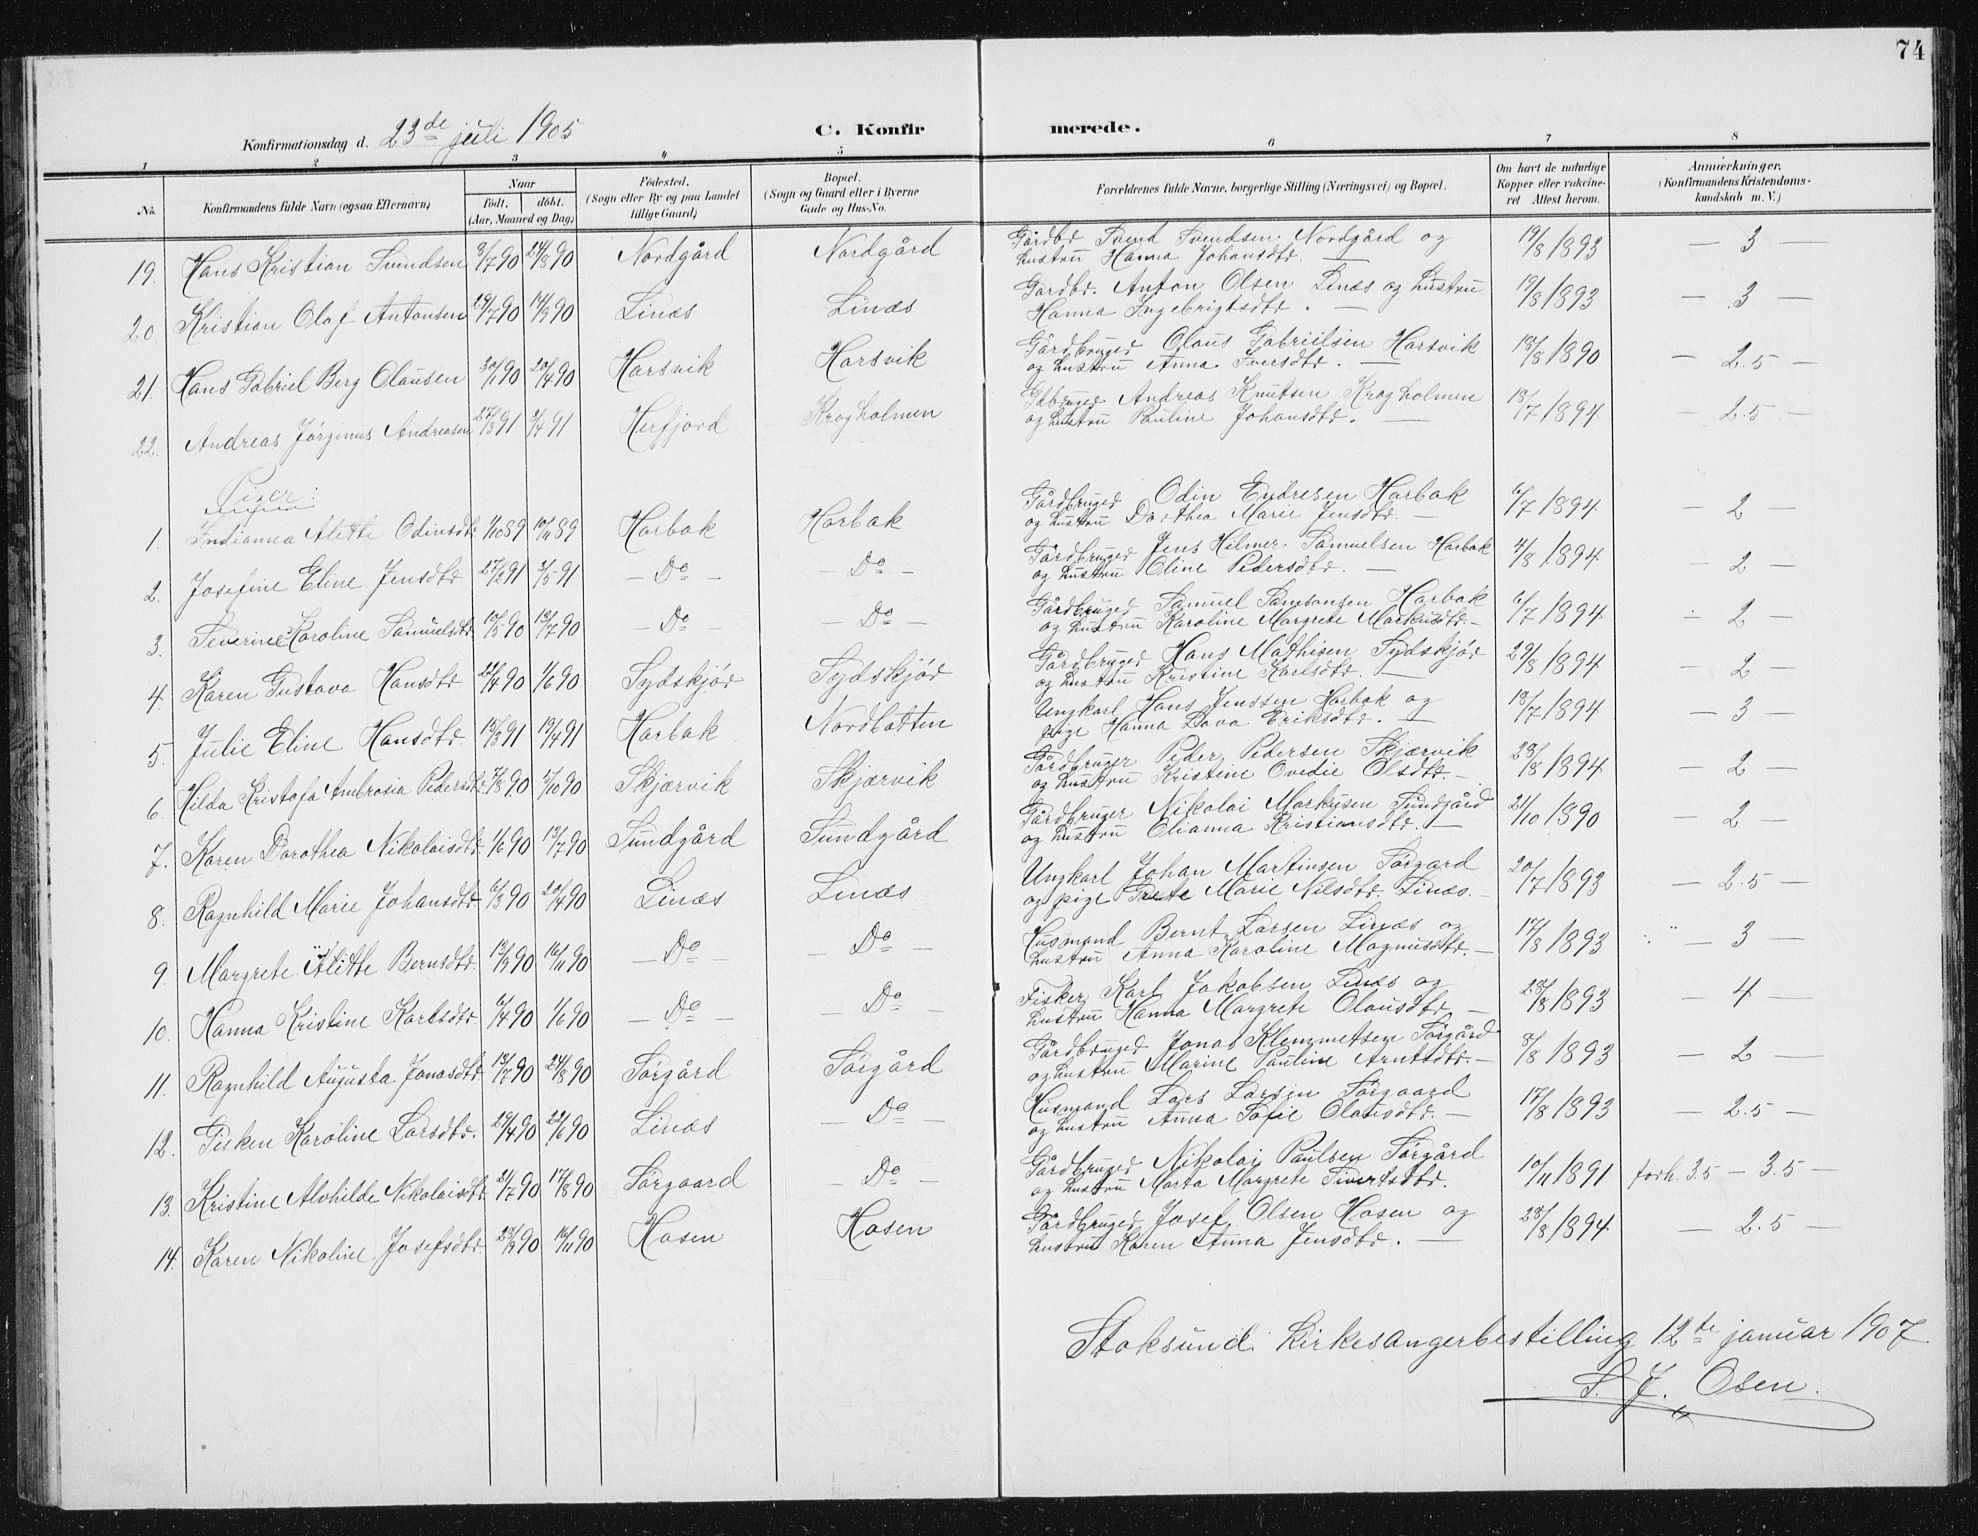 74
Konfirmationsdag d. 23de juli 1905 C. Konfirmerede.
1 2 3 4 5 6 7 8
No. Konfirmandens fulde Navn (ogsaa Efternavn) Naar født. døbt. (Aar, Maaned og Dag) Fødested. (Sogn eller By og paa Landet tillige Gaard) Bopæl. (Sogn og Gaard eller i Byerne Gade og Hus-No. Forældrenes fulde Navne, borgerlige Stilling (Næringsvei) og Bopæl. Om havt de naturlige Kopper eller vakcineret Attest herom. Anmærkninger. (Konfirmandens Kristendomskundskab m. V.)
19. Hans Kristian Svendsen 9/7 90 24/8 90 Nordgård Nordgård Gårdbr Svend Svendsen Nordgård og hustru Hanna Johansdtr. — 19/8 1893 — 3 —
20. Kristian Olaf Antonsen 29/7 90 14/9 90 Linæs Linæs Gårdbr. Anton Olsen Linæs og hustru Hanna Ingebrigtsdtr. — 19/8 1893 — 3 —
21. Hans Gabriel Berg Olausen 30/1 90 20/4 90 Harsvik Harsvik Gårdbruged Olaus Gabrielsen Harsvik og hustru Anna Iversdtr. — 18/8 1890 — 2.5 —
22. Andreas Jørginus Andreasen 27/3 91 /4 91 Herfjord Krogholmen Gbruged Andreas Knutsen Krogholmen og hustru Pauline Johansdtr. — 18/7 1894 2.5 —
Piger:
1. Indianna Alette Odinsdtr 1/10 89 10/11 89 Harbak Harbak Gårdbruged Odin Endresen Harbak og hustru Dorthea Marie Jensdtr. — 6/7 1894 — 2 —
2. Josefine Eline Jensdtr 27/2 91 3/5 91 — Do — — Do — Gårdbruged Jens Hilmer Samuelsen Harbak og hustru Oline Pedersdtr. — 4/8 1894 — 2 —
3. Severine Karoline Samuelsdtr 10/5 90 13/7 90 — Do — — Do — Gårdbruged Samuel Samsonsen Harbak og hustru Karoline Margrete Markusdtr. — 6/7 1894 — 2 —
4. Karen Gustava Hansdtr 22/4 90 1/6 90 Sydskjør Sydskjør Gårdbruged Hans Mathisen Sydskjør og hustru Kristine Karlsdtr. — 29/8 1894 — 2 —
5. Julie Eline Hansdtr 15/3 91 19/4 91 Harbak Nordbotten Ungkarl Hans Jenssen Harbak og pige Hanna Lava Eriksdtr. — 18/7 1894 — 3 —
6. Hilda Kristofa Ambrosia Pedersdtr 7/8 90 5/10 90 Skjærvik Skjærvik Gårdbruger Peder Pedersen Skjærvik og hustru Kristine Ovedie Olsdtr. — 28/8 1894 — 2 —
7. Karen Dorothea Nikolaisdtr 1/6 90 13/7 90 Sundgård Sundgård Gårdbruger Nikolai Markusen Sundgård og hustru Olianna Kristiansdtr. — 21/10 1890 — 2 —
8. Ragnhild Marie Johansdtr 6/3 90 20/4 90 Linæs Linæs Ungkarl Johan Martinsen Sørgard og pige Grete Marie Nilsdtr. Linæs. — 20/7 1893 — 2.5 —
9. Margrete Alette Berntsdtr 13/9 90 16/11 90 — Do — — Do — Husmand Bernt Larsen Linæs og hustru Anna Karoline Magnusdtr. — 17/8 1893 — 3 —
10. Hanna Kristine Karlsdtr 6/4 90 1/6 90 — Do — — Do — Fisker Karl Jakobsen Linæs og hustru Hanna Margrete Olausdtr — 28/8 1893 — 4 —
11. Ragnhild Augusta Jonasdtr 13/7 90 24/8 90 Sørgård Sørgård Gårdbruged Jonas Klemmetsen Sørgård og hustru Marine Pauline Arntsdtr. — 8/8 1893 — 2 —
12. Pisken Karoline Larsdtr. 29/4 90 22/6 90 Linæs — Do — Husmand Lars Larsen Sørgaard og hustru Anna Sofie Olausdtr. — 17/8 1893 — 2.5 —
13. Kristine Alvhilde Nikolaisdtr 21/7 90 17/8 90 Sørgaard — Do — Gårdbruged Nikolai Paulsen Sørgård og hustru Marta Margrete Sivertsdtr. 10/11 1891 forh. 3.5 — 3.5 —
14. Karen Nikoline Josefsdtr 23/9 90 16/11 90 Hosen Hosen Gårdbruged Josef Olsen Hosen og hustru Karen Anna Jensdtr. — 28/8 1894 — 2.5 —
Stoksund kirkesangerbestilling 12te januar 1907.
S. J. Osen.